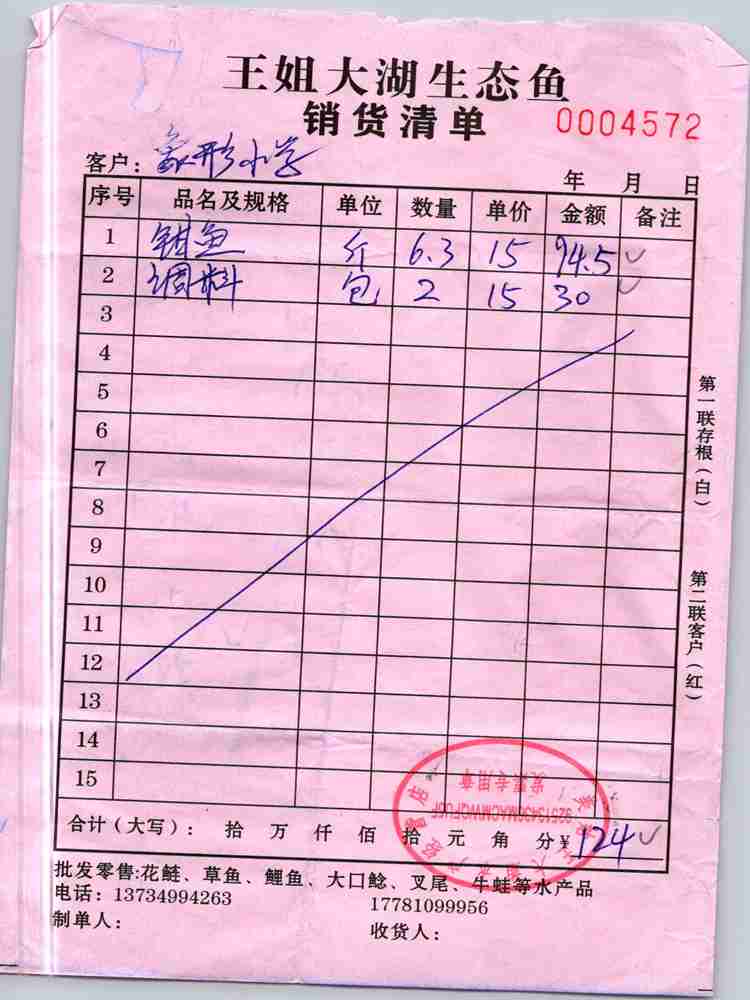 王姐大湖生态鱼
销货清单 0004572
客户：象形小学 年 月 日
序号 品名及规格 单位 数量 单价 金额 备注
1 钳鱼 斤 6.3 15 94.5
2 调料 包 2 15 30
3
4
5
6
7
8
9
10
11
12
13
14
15
合计（大写）： 拾 万 仟 佰 拾 元 角 分¥ 124
批发零售:花鲢、草鱼、鲤鱼、大口鲶、叉尾、牛蛙等水产品
电话：13734994263 17781099956
制单人： 收货人：
第一联存根（白）
第二联客户（红）
发票专用章